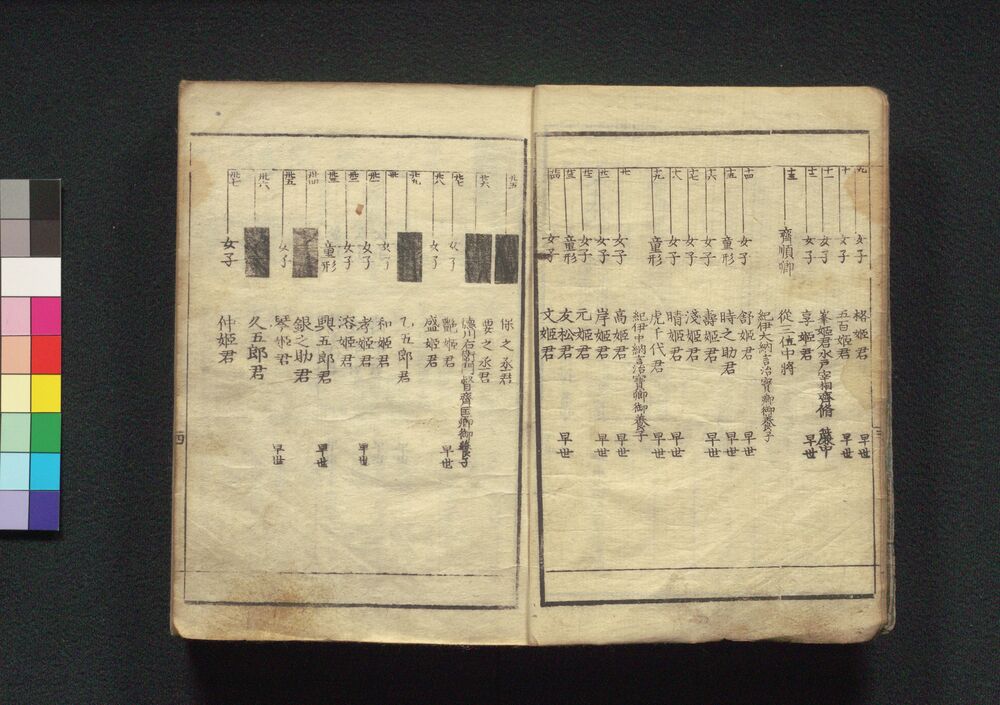 九 女子 格姫君 早世
十 女子 五百姫君 早世
十一 女子 峯姫君 水戸宰相齊脩 簾中
十二 女子 享姫君 早世
十三 齊順卿 從三位中將
紀伊大納言治寶卿御養子
十四 女子 舒姫君 早世
十五 童形 時之助君 早世
十六 女子 壽姫君 早世
十七 女子 淺姫君
十八 女子 晴姫君 早世
十九 童形 虎千代君 早世
紀伊中納言治寶卿御養子
廿 女子 高姫君 早世
廿一 女子 岸姫君 早世
廿二 女子 元姫君
廿三 童形 友松君 早世
廿四 女子 文姫君
三
廿五 保之丞君
廿六 要之丞君
德川右衛門督齊匡卿御養子
廿七 女子 艷姫君 早世
廿八 女子 盛姫君
廿九 乙五郎君
卅 女子 和姫君
卅一 女子 孝姫君 早世
卅二 女子 溶姫君
卅三 童形 興五郎君 早世
卅四 銀之助君
卅五 女子 琴姫君 早世
卅六 久五郎君
卅七 女子 仲姫君
四